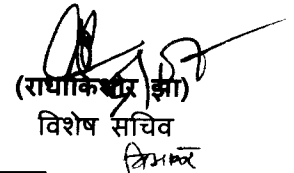 (राधाकिशोर झा)
विशेष सचिव